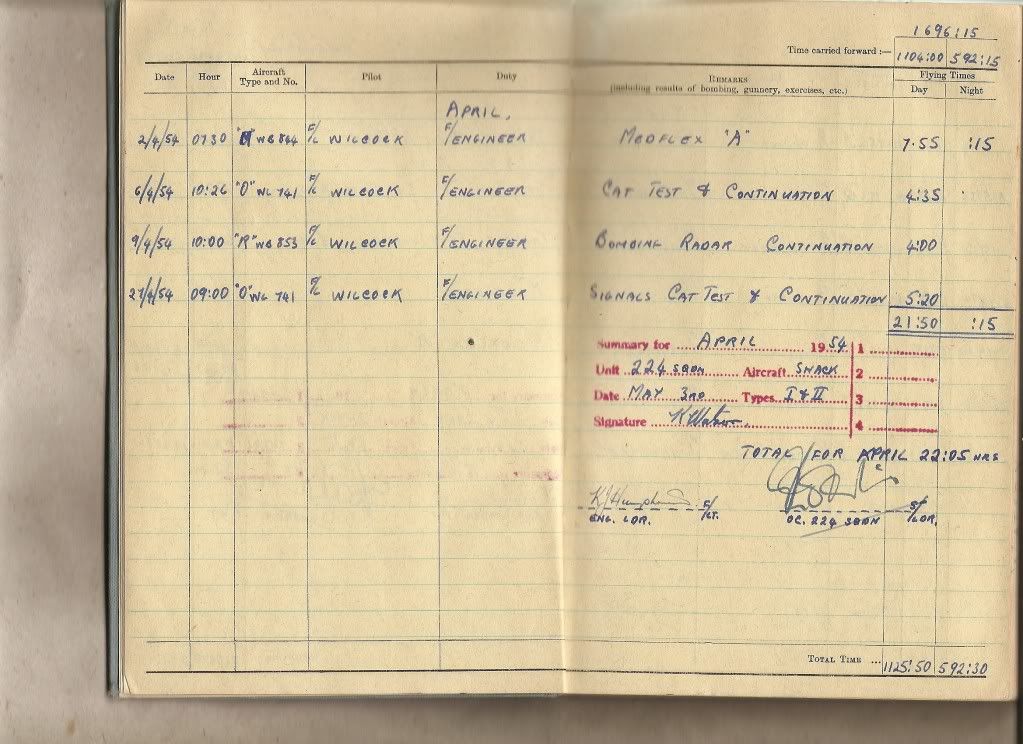 1696:15
Time carried forward :— 1104:00 592:15
Date Hour Aircraft Type and No. Pilot Duty REMARKS (including results of bombing, gunnery, exercises, etc.) Flying Times Day Night
APRIL.
2/4/54 0730 WB 844 F/L WILCOCK F/ENGINEER MEDFLEX "A" 7.55 :15
6/4/54 10:26 "O" WL 741 F/L WILCOCK F/ENGINEER CAT TEST & CONTINUATION 4:35
9/4/54 10:00 "R" WB 853 F/L WILCOCK F/ENGINEER BOMBING RADAR CONTINUATION 4:00
27/4/54 09:00 "O" WL 741 F/L WILCOCK F/ENGINEER SIGNALS CAT TEST & CONTINUATION 5:20
21:50 :15
Summary for APRIL 1954 1
Unit 224 SQDN Aircraft SHACK 2
Date MAY 3RD Types I & II 3
Signature 4
TOTAL FOR APRIL 22:05 HRS
F/LT. S/LDR.
ENG. LDR. OC. 224 SQDN
TOTAL TIME ... 1125:50 592:30